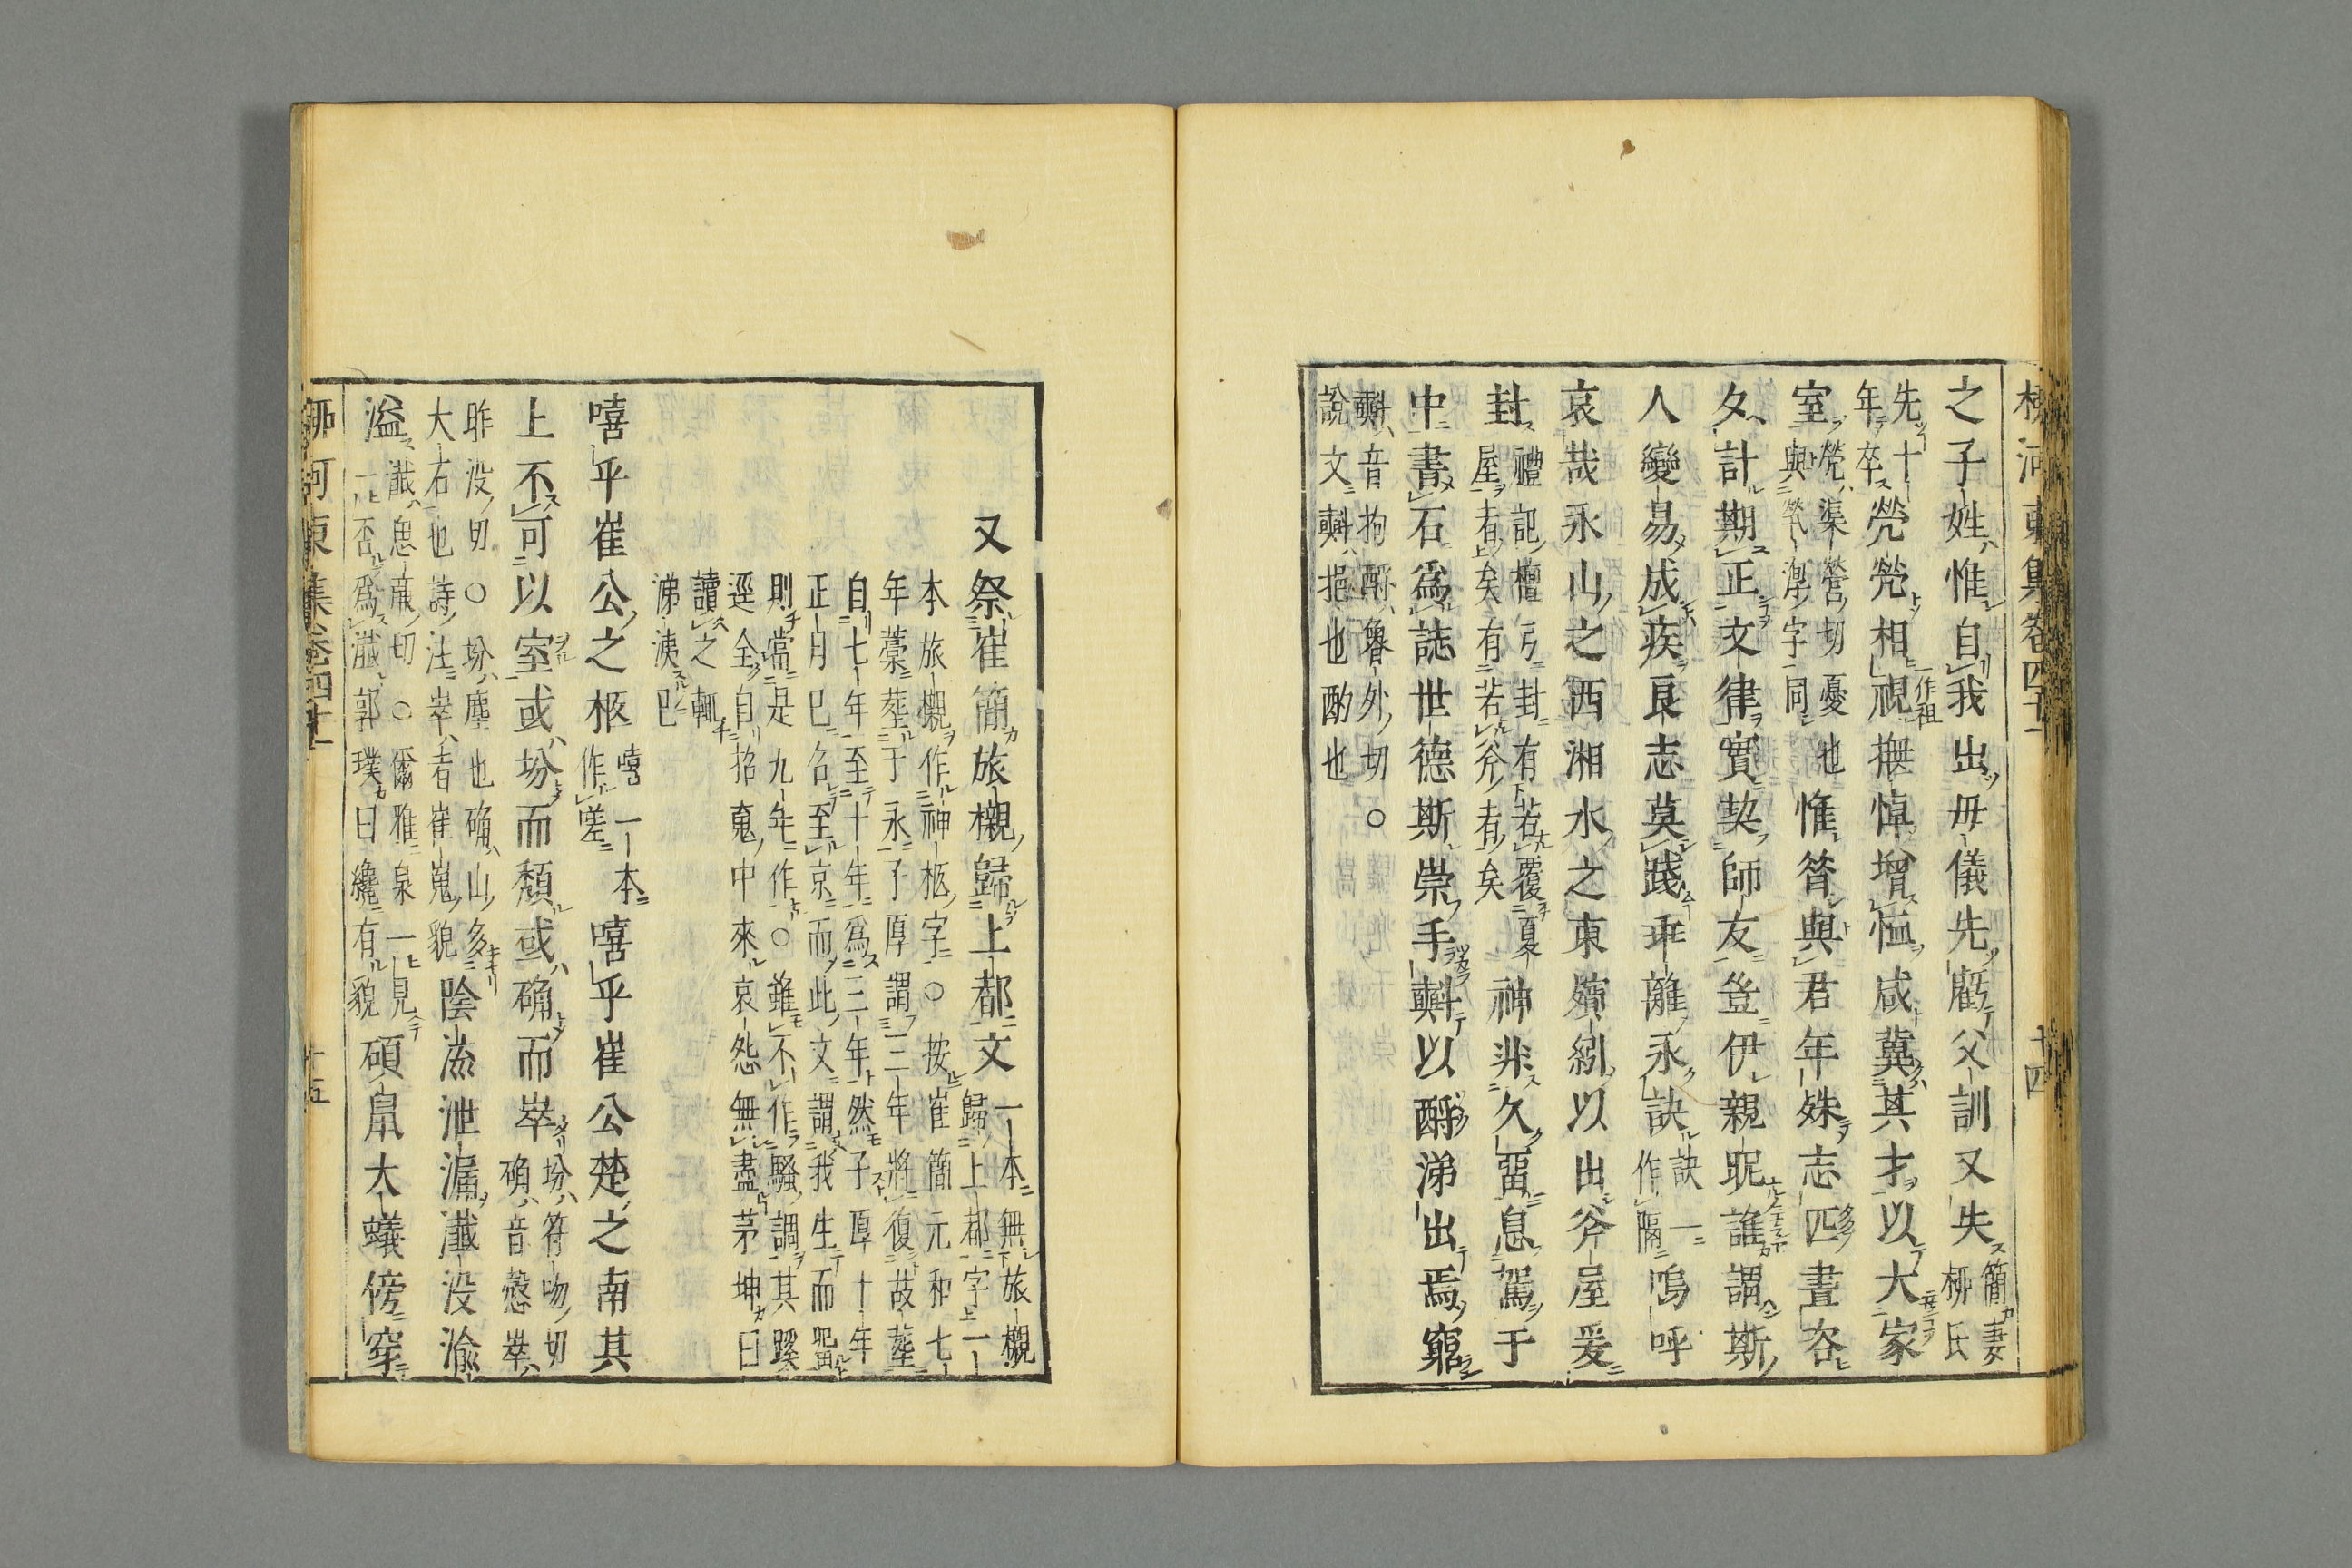 柳河東集卷四十一
十四
之子姓惟自我出毋儀先虧父訓又失
簡妻
柳氏
先十
年卒
煢煢相視
一作
祖
撫悼增恤咸冀其才以大家
室
煢渠營切憂也
與惸惸字同
惟咎與君年殊志匹晝咨
夕計期正文律實契師友登伊親昵誰謂斯
人變易成疾良志莫踐乖離永訣
訣一
作隔
嗚呼
哀哉永山之西湘水之東殯紖以出斧屋爰
封
禮記檀弓封有若覆夏
屋者矣有若斧者矣
神非久留息駕于
中書石爲誌世德斯崇手㪺以酹涕出焉窮
㪺音拘酹魯外切○
說文㪺挹也酌也
又祭崔簡旅櫬歸上都文
一本無旅櫬
歸上都字一
本旅櫬作神柩字○按崔簡元和七
年藁塟于永子厚謂三年將復故塟
自七年至十年爲三年然子厚十年
正月已名至京而此文謂我生而留
則當是九年作○雖不作騷調其蹊
逕全自招䰟中來哀怨無盡茅坤曰
讀之輒
涕洟巳
嘻乎崔公之柩
嘻一本
作嗟
嘻乎崔公楚之南其
上不可以室或坋而頹或确而崒
坋符吻切
确音慤崒
昨没切○坋塵也确山多
大石也詩注崒者崔嵬貌
陰流泄漏瀸没渝
溢
瀸息亷切○爾雅泉一見
一否爲瀸郭璞曰纔有貌
碩鼠大蟻傍穿
柳河東集卷四十一
十五